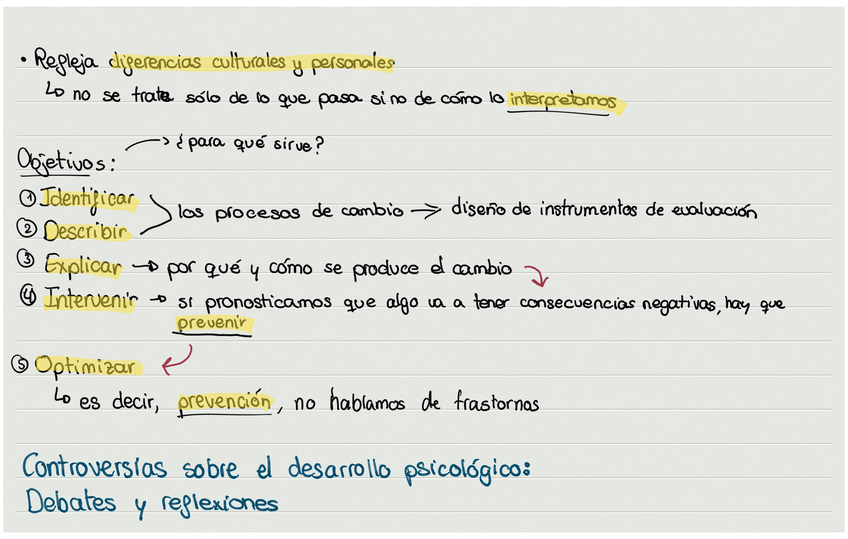 • Refleja diferencias culturales y personales
↳ no se trata sólo de lo que pasa sino de cómo lo interpretamos
Objetivos: → ¿para qué sirve?
① Identificar
② Describir
los procesos de cambio → diseño de instrumentos de evaluación
③ Explicar → por qué y cómo se produce el cambio
④ Intervenir → si pronosticamos que algo va a tener consecuencias negativas, hay que
prevenir
⑤ Optimizar
↳ es decir, prevención, no hablamos de trastornos
Controversias sobre el desarrollo psicológico:
Debates y reflexiones